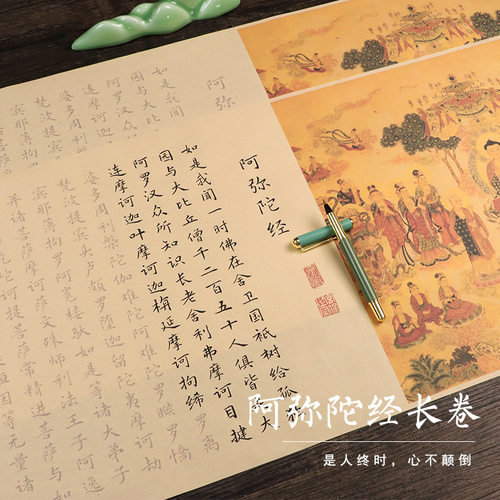 阿弥
如是我闻
园与大比
阿罗汉众
连摩诃迦
婆多周利
梵波提
宾那薄拘
阿弥陀经
如是我闻一时佛在舍卫国祇树给孤
园与大比丘僧千二百五十人俱皆
大
阿罗汉众所知识长老舍利弗摩诃目揵
连摩诃迦叶摩诃迦栴延摩诃拘絺
罗离
婆多周利槃陀伽难陀阿难陀罗睺罗憍
梵波提宾头卢颇罗堕迦留陀夷摩诃劫
宾那薄拘
楼驮如是等诸大弟子
并诸菩萨摩诃萨文殊师利法王子阿逸
陀诃提菩萨常精进菩萨与如
桓因等无量诸
阿弥陀经长卷
是人终时，心不颠倒